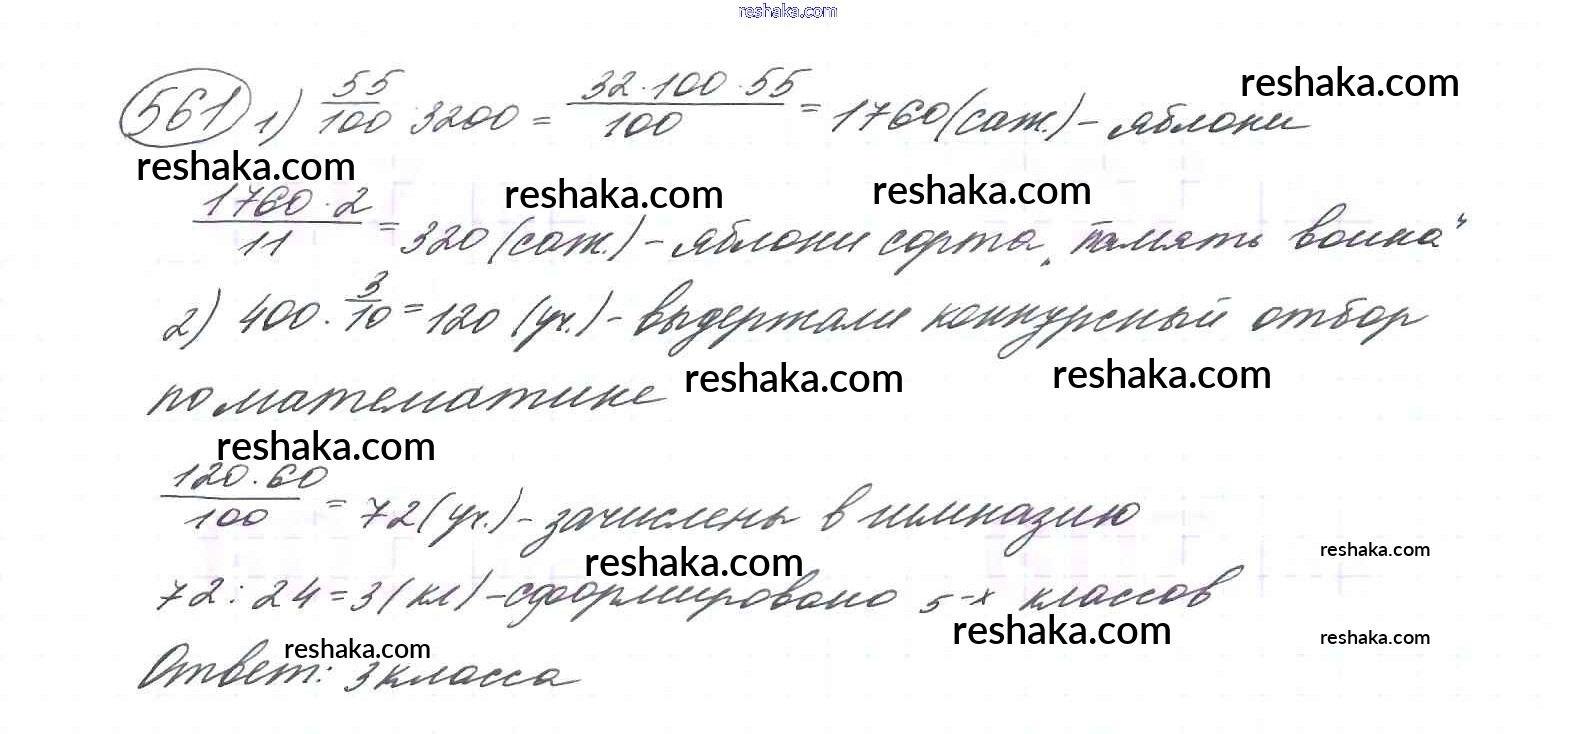 reshaka.com
561 1) 55/100 · 3200 = 32·100·55/100 = 1760 (саж.) – яблони
reshaka.com
reshaka.com
reshaka.com
reshaka.com
1760·2/11 = 320 (саж.) – яблони сорта „Память воина“
2) 400 · 3/10 = 120 (уч.) – выдержали конкурсный отбор
reshaka.com
reshaka.com
по математике
reshaka.com
120·60/100 = 72 (уч.) – зачислены в гимназию
reshaka.com
reshaka.com
72 : 24 = 3 (кл) – сформировано 5-х классов
reshaka.com
reshaka.com
reshaka.com
Ответ: 3 класса